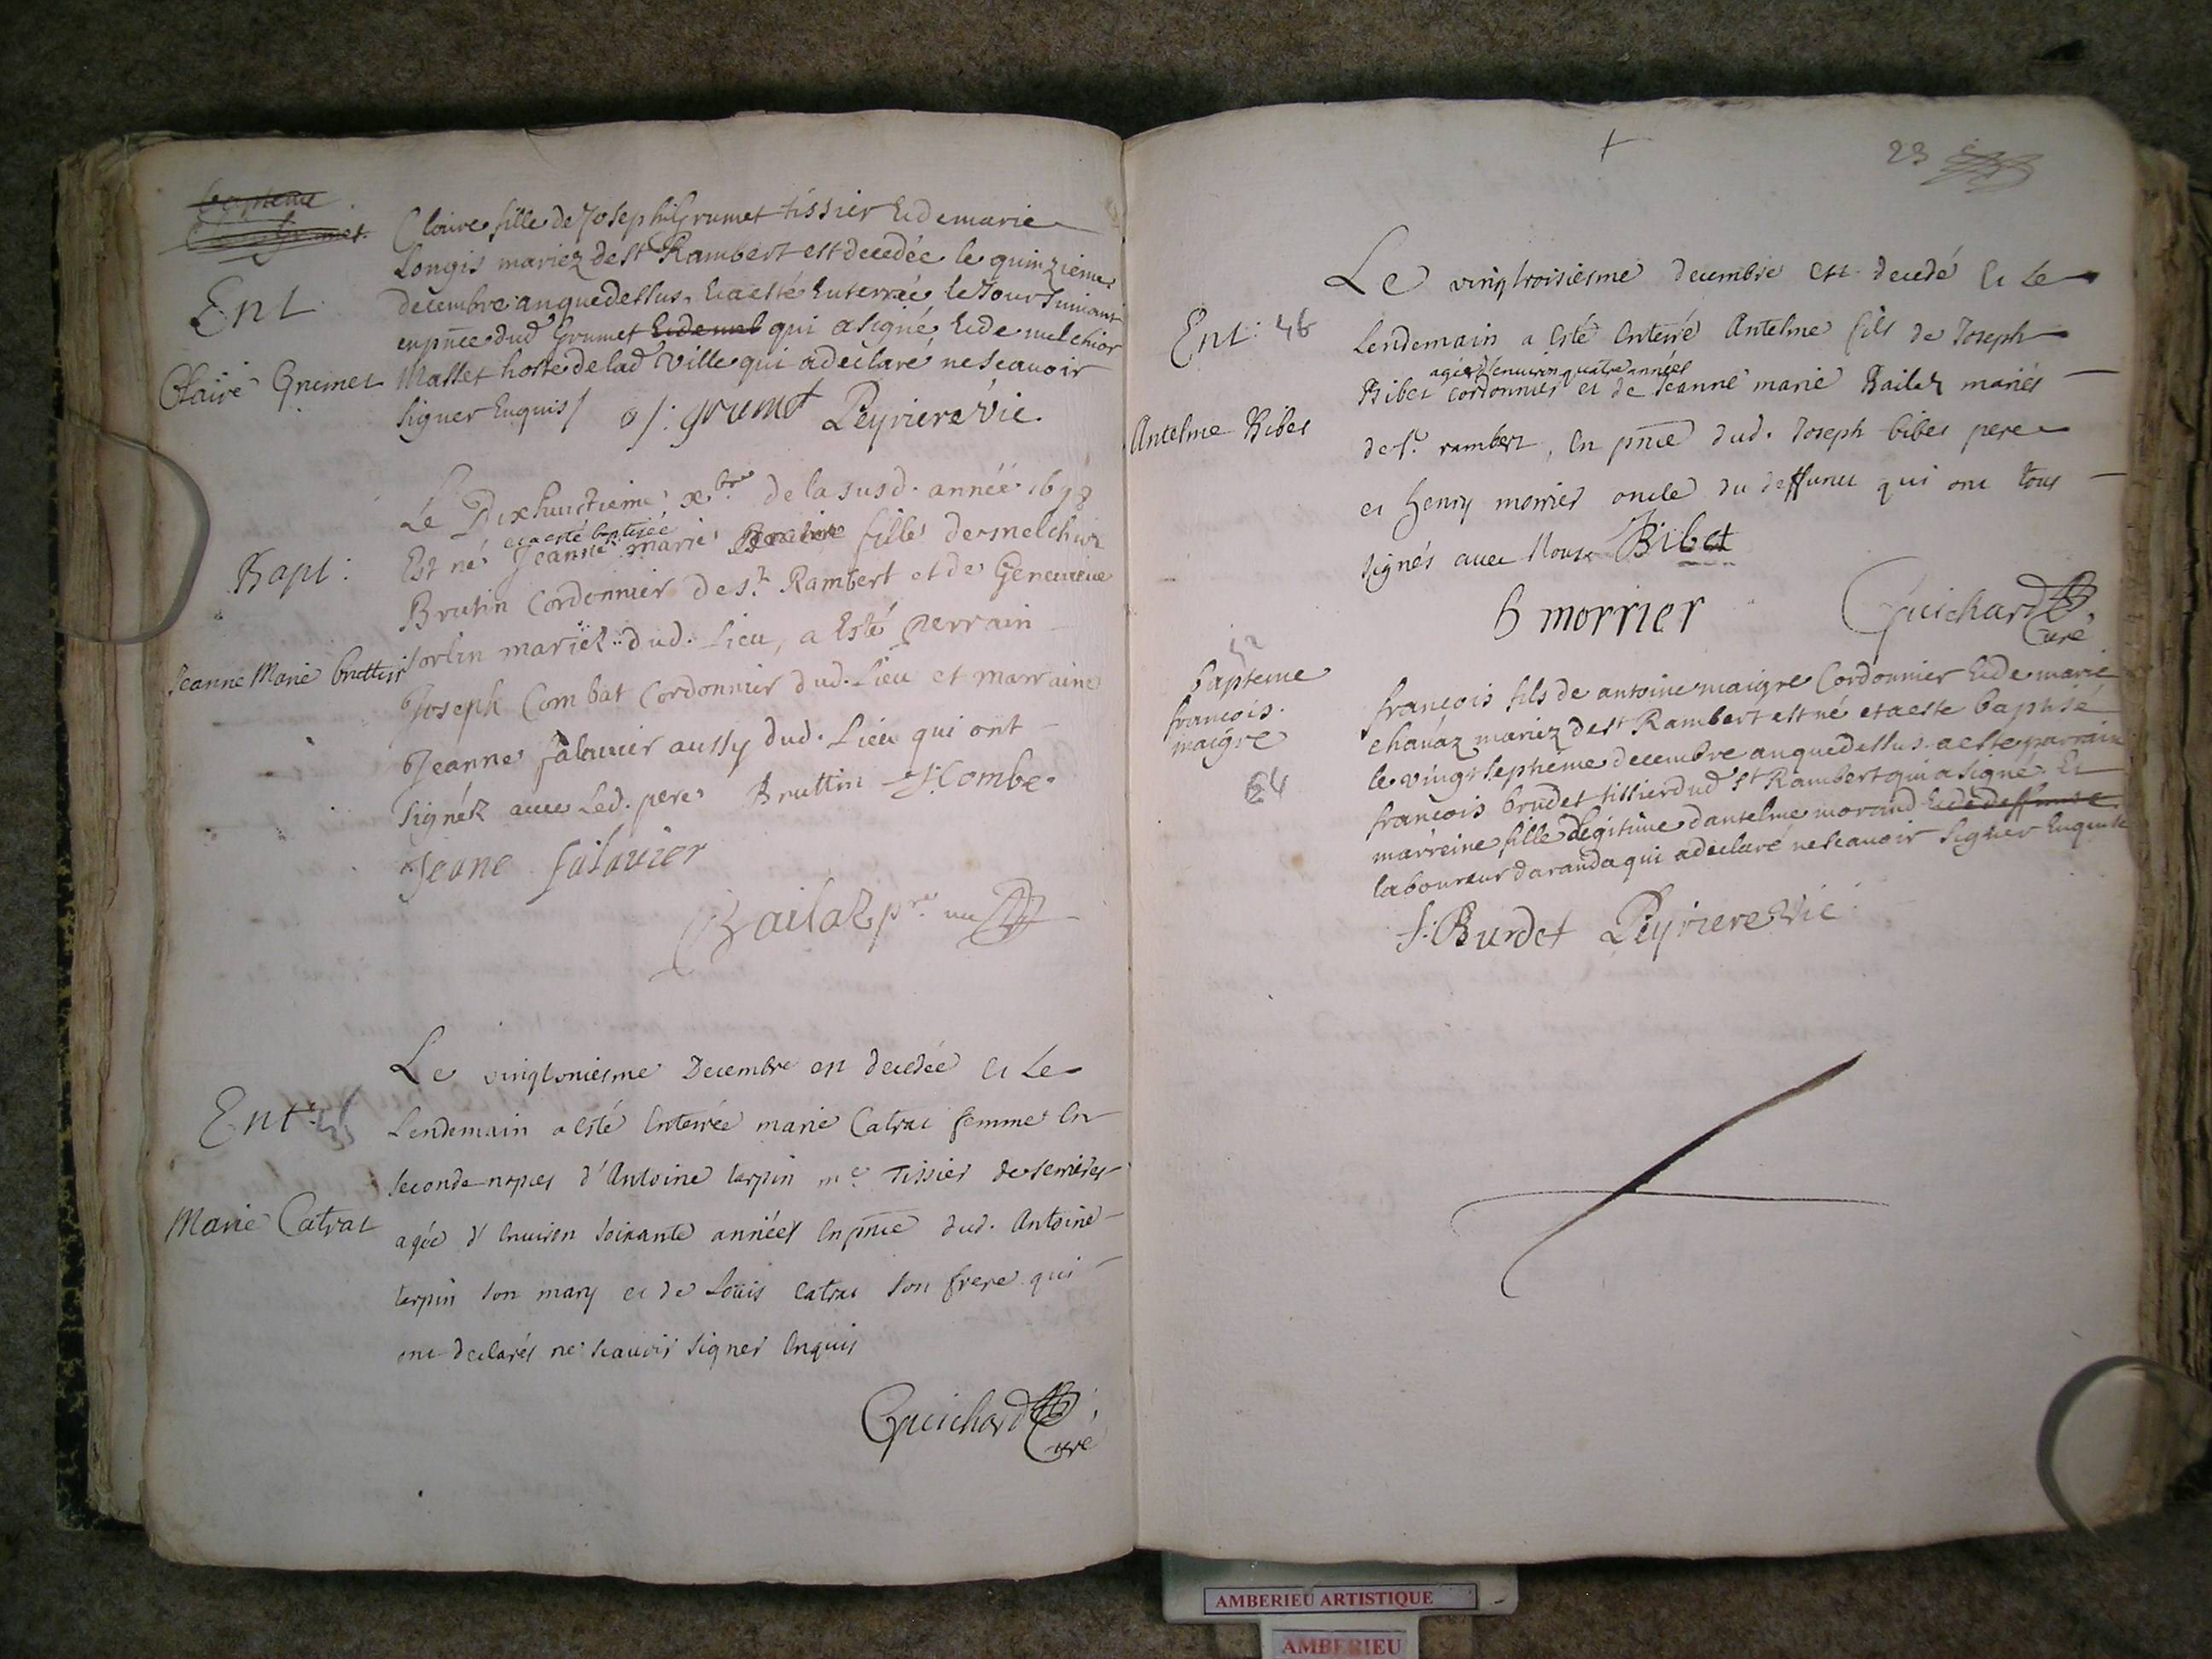 Ent
Claire Grumet
Claire fille de Joseph Grumet tissier Et de marie
Longis mariez de st Rambert est decedée le quinzieme
decembre an que dessus. Et a esté Enterrée le Jour suivant
en pnce dud Grumet qui a signé Et de melchior
Masset hoste de lad Ville qui a declaré ne scavoir
signer Enquis / grumet Peyriere Vic.
Bapt:
Jeanne Marie bruttin
Le Dixhuictieme xbre de la susd. année 1698
et a esté baptisée
Est né Jeanne marie fille de melchior
Brutin Cordonnier de st. Rambert et de Genevieve
sorlin mariez dud. Lieu, a Esté perrain
Joseph Combat Cordonnier dud. Lieu et marraine
Jeanne falavier aussy dud. Lieu qui ont
signéz avec Led. pere Bruttin J: Combe
Jeane falavier
Bailaz pre
Ent:
Marie Catrat
Le vingtoniesme Decembre est decedée et Le
Lendemain a esté Enterrée marie Catrat femme En
seconde nopces d'Antoine terpin me Tissier de serrieres
agée d'Environ soixante années En pnce dud. Antoine
terpin son mary et de Loüis Catrat son frere qui
ont declarés ne scavoir signer Enquis
Guichard
Curé
23
Ent: 46
Antelme Bibet
Le vingtroisiesme decembre est decedé et Le
Lendemain a Esté Enterré Antelme fils de Joseph
agé d'environ quatre années
Bibet cordonnier et de Jeanne marie Bailez mariés
de st. rambert, En pnce dud. Joseph bibet pere
et henry morrier oncle du deffunct qui ont tous
signés avec Nous Bibet
h morrier
Guichard
Curé
52
bapteme
francois
maigre
64
francois fils de antoine maigre Cordonnier Et de marie
chavaz mariez de st Rambert est né et a esté baptisé
le vingt septieme decembre an que dessus a esté parrain
francois brudet tissier dud st Rambert qui a signé Et
marreine fille Légitime d'antelme morand
laboureur daranda qui a declaré ne scavoir signer Enquise
f: Burdet Peyriere Vic
AMBERIEU ARTISTIQUE
AMBERIEU